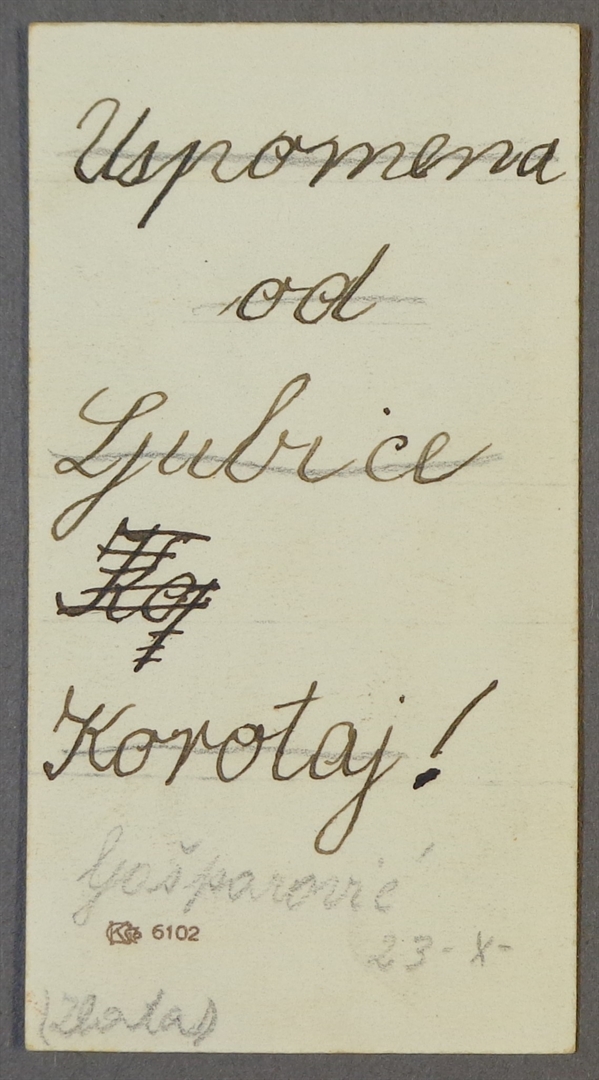 Uspomena
od
Ljubice
Korotaj!
Gošparović
6102
23-X-
(Zlata)